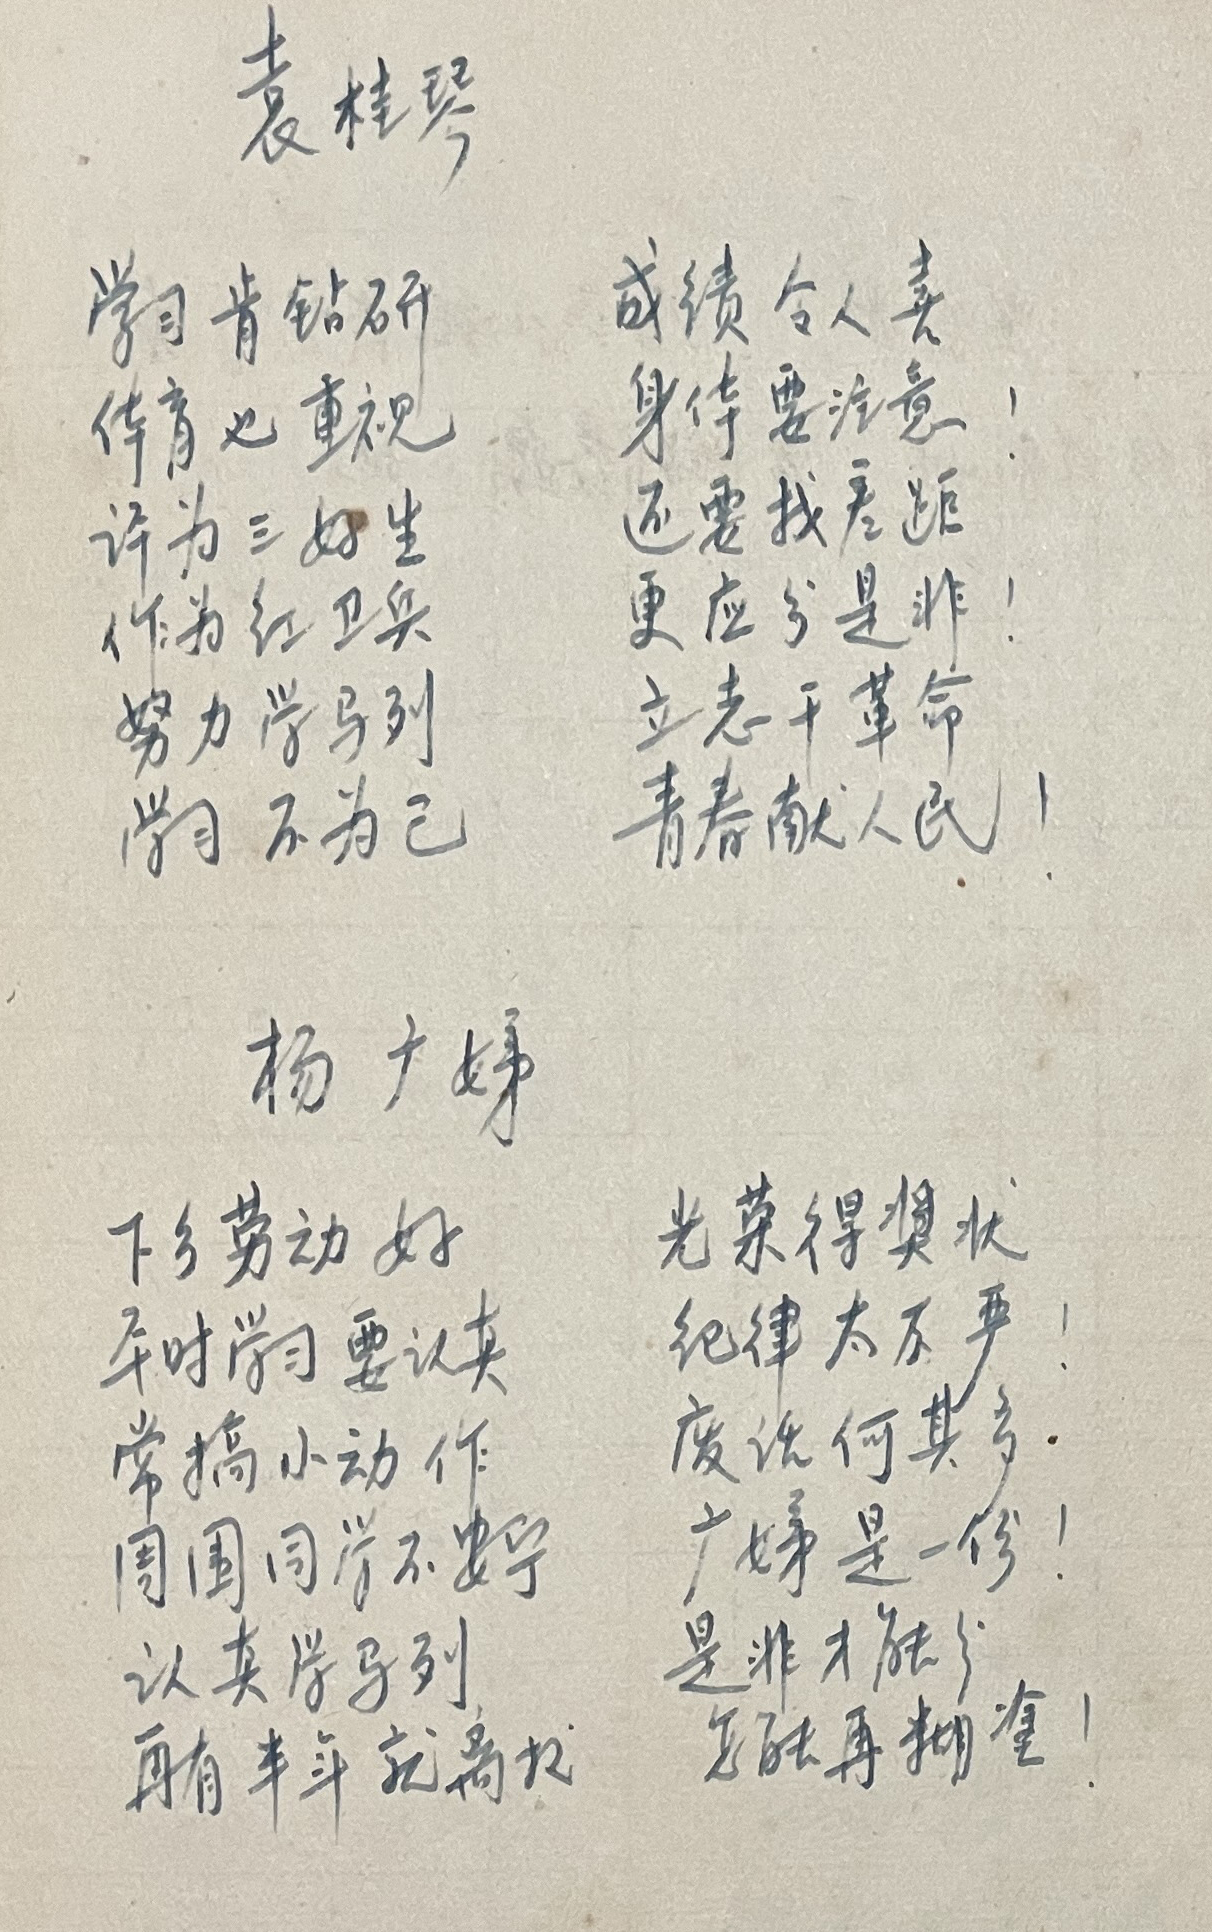 袁桂琴
学习肯钻研 成绩令人喜
体育也重视 身体要注意!
评为三好生 还要找差距
作为红卫兵 更应分是非!
努力学马列 立志干革命
学习不为己 青春献人民!
杨广娣
下乡劳动好 光荣得奖状
平时学习要认真 纪律太不严!
常搞小动作 废话何其多.
周围同学不安宁 广娣是一份!
认真学马列 是非才能分
再有半年就离校 怎能再糊涂!